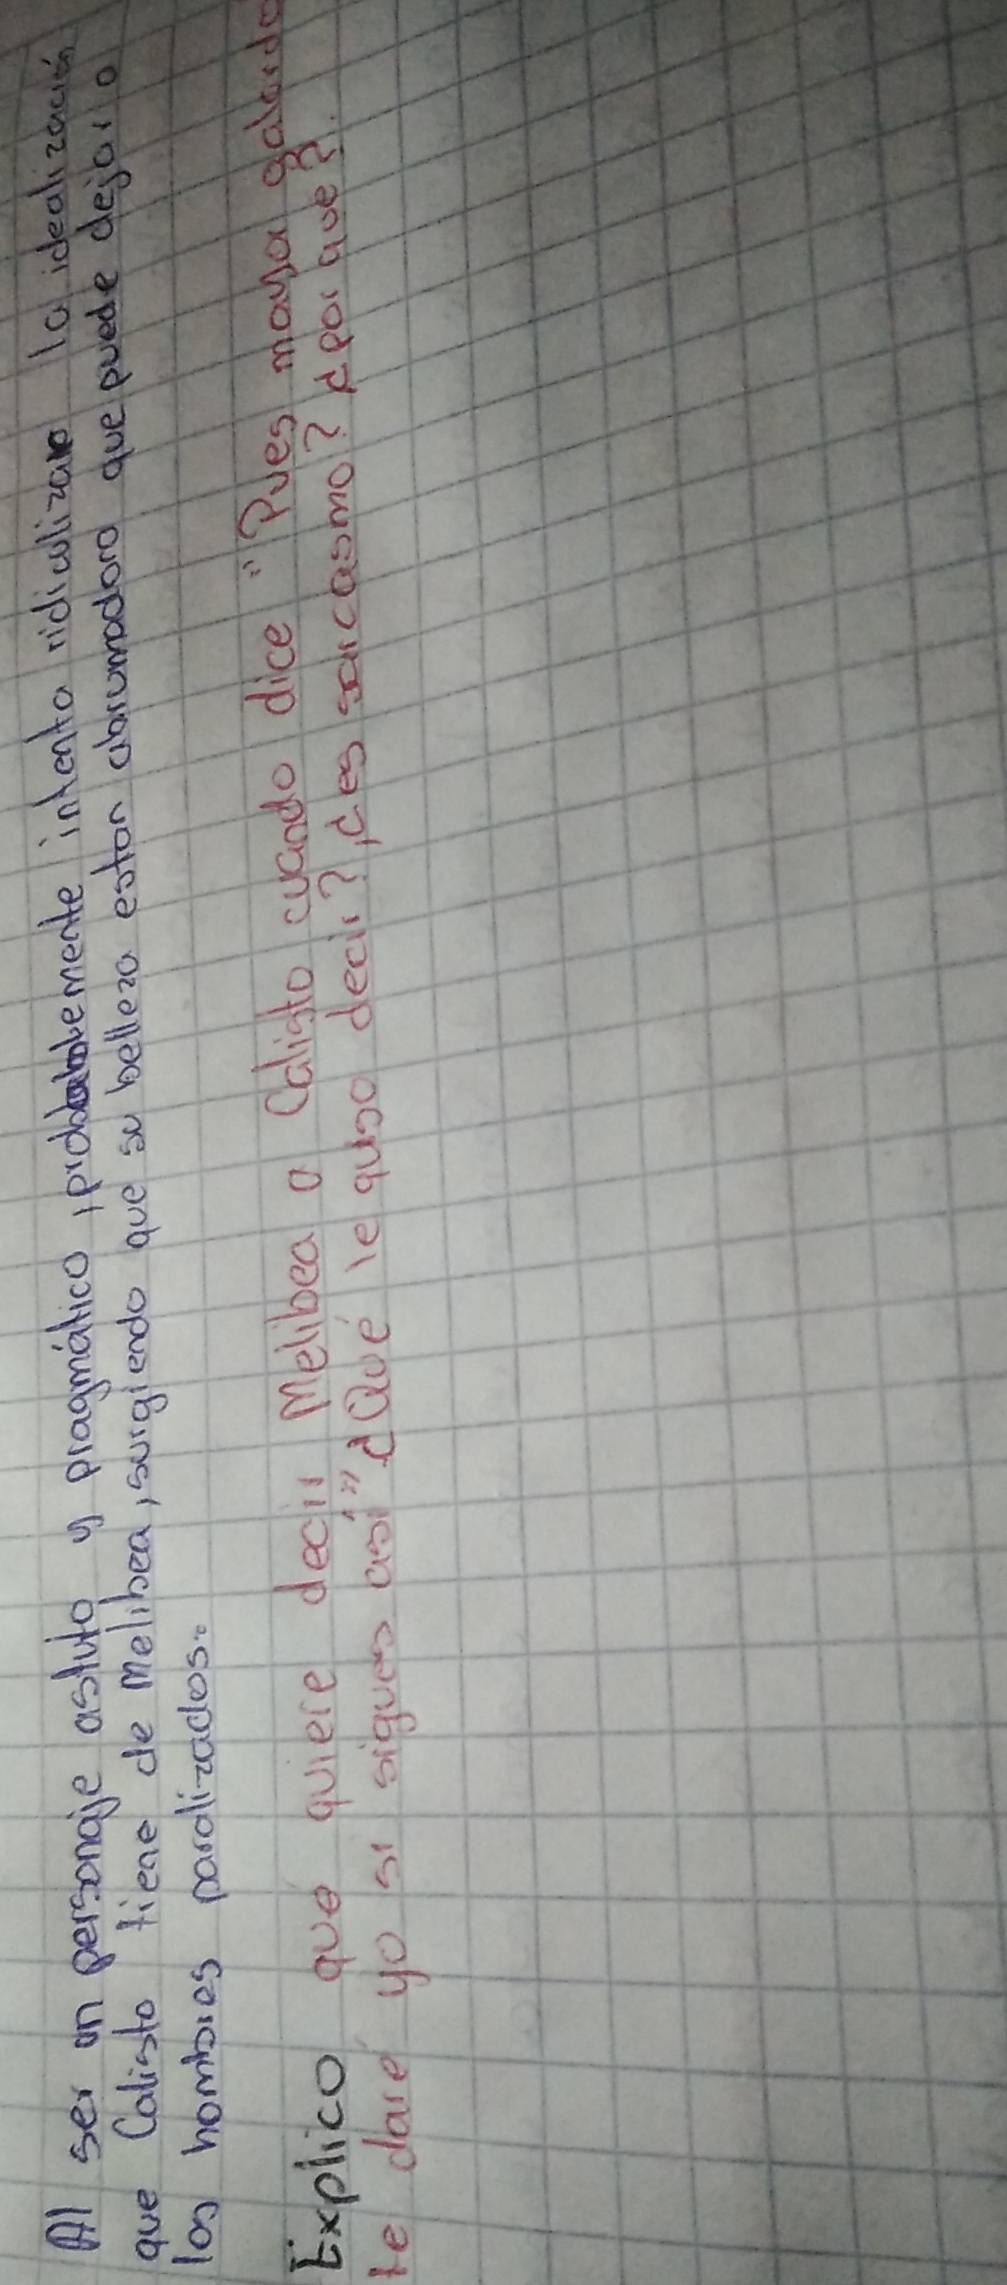 Al ser un personaje astuto y pragmático, probablemente intenta ridiculizar la idealización
que Calisto tiene de Melibea, surgiendo que su belleza estan abrumadora que puede dejar a
los hombres paralizados.
Explico que quiere decir Melibea a Calisto cuando dice "Pues mayor galardo
te daré yo si sigues así" ¿Qué le quso decir? ¿es sarcasmo? ¿por que?.